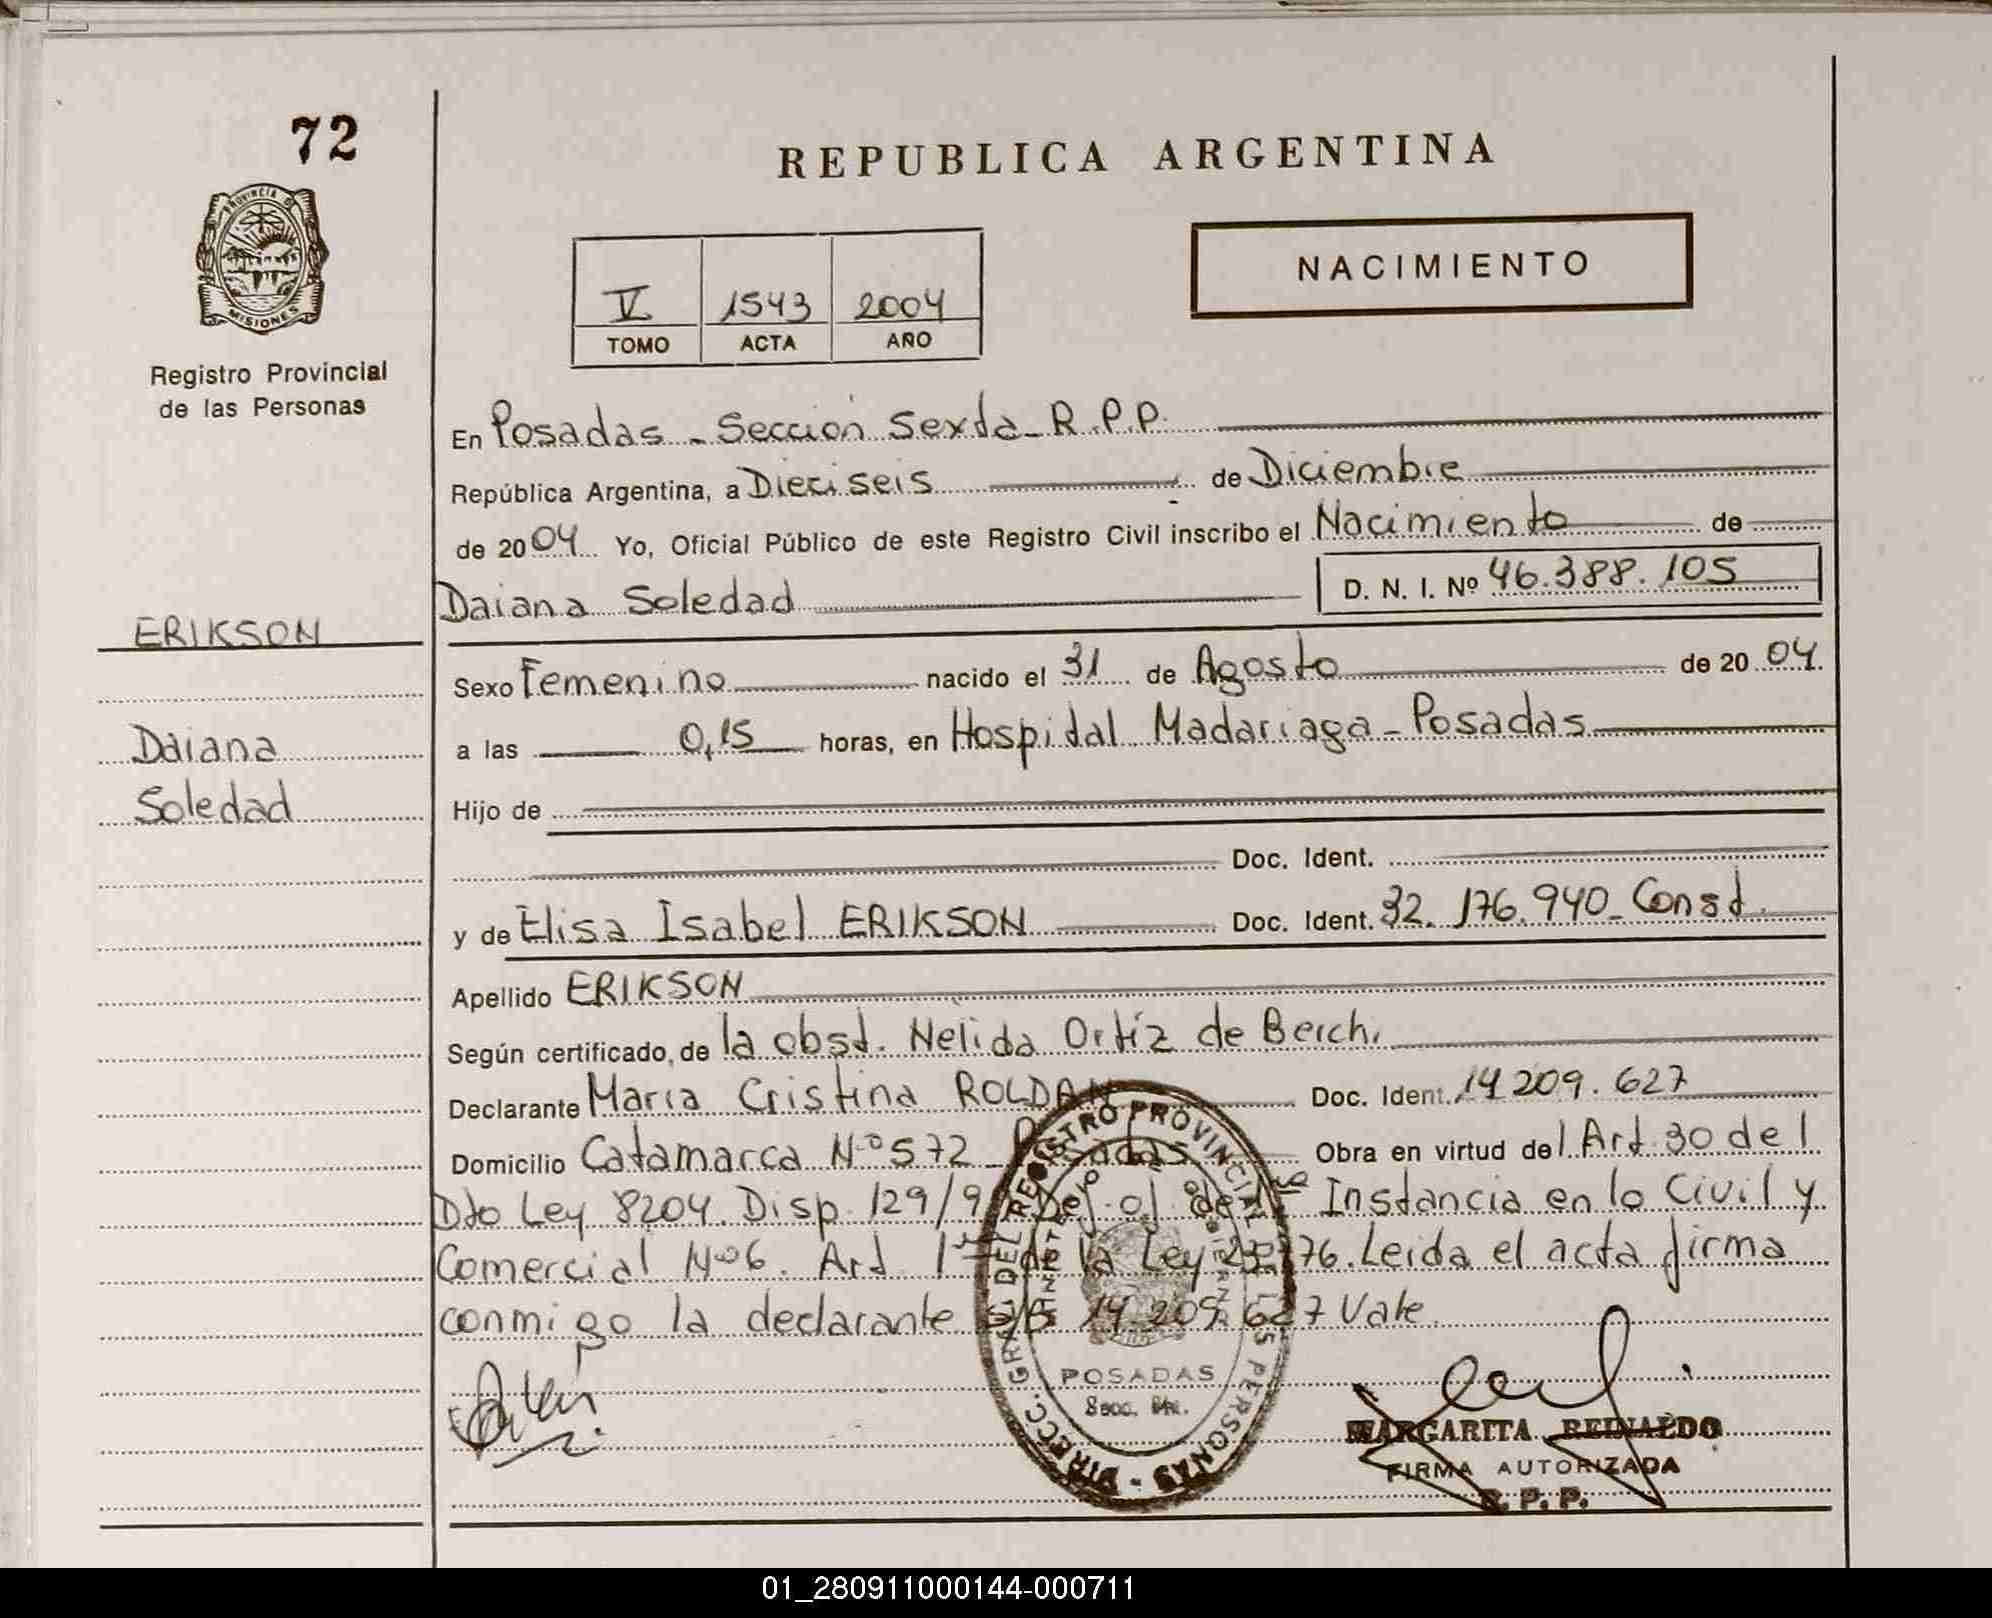 72
REPUBLICA ARGENTINA
PROVINCIA DE
MISIONES
Registro Provincial
de las Personas
V 1543 2004
TOMO ACTA AÑO
NACIMIENTO
En Posadas - Sección Sexta - R.P.P.
República Argentina, a Dieciseis de Diciembre
de 2004 Yo, Oficial Público de este Registro Civil inscribo el Nacimiento de
Daiana Soledad D. N. I. Nº 46.388.105
ERIKSON
Sexo Femenino nacido el 31 de Agosto de 2004.
Daiana
a las 0,15 horas, en Hospital Madariaga - Posadas
Soledad
Hijo de
Doc. Ident.
y de Elisa Isabel ERIKSON Doc. Ident. 32.176.940 - Const.
Apellido ERIKSON
Según certificado, de la obst. Nelida Ortíz de Berch.
Declarante Maria Cristina ROLDAN Doc. Ident. 14 209.627
Domicilio Catamarca Nº 572 - Posadas Obra en virtud del Art. 30 del
Dto Ley 8204. Disp. 129/9 de 1ra Instancia en lo Civil y
Comercial Nº 6. Art. 1 de la Ley Leida el acta firma
conmigo la declarante 14.209.627 Vale
DIRECC. GRAL. DEL REGISTRO PROVINCIAL DE LAS PERSONAS
POSADAS
Secc.
MARGARITA REINALDO
FIRMA AUTORIZADA
R. P. P.
01_280911000144-000711